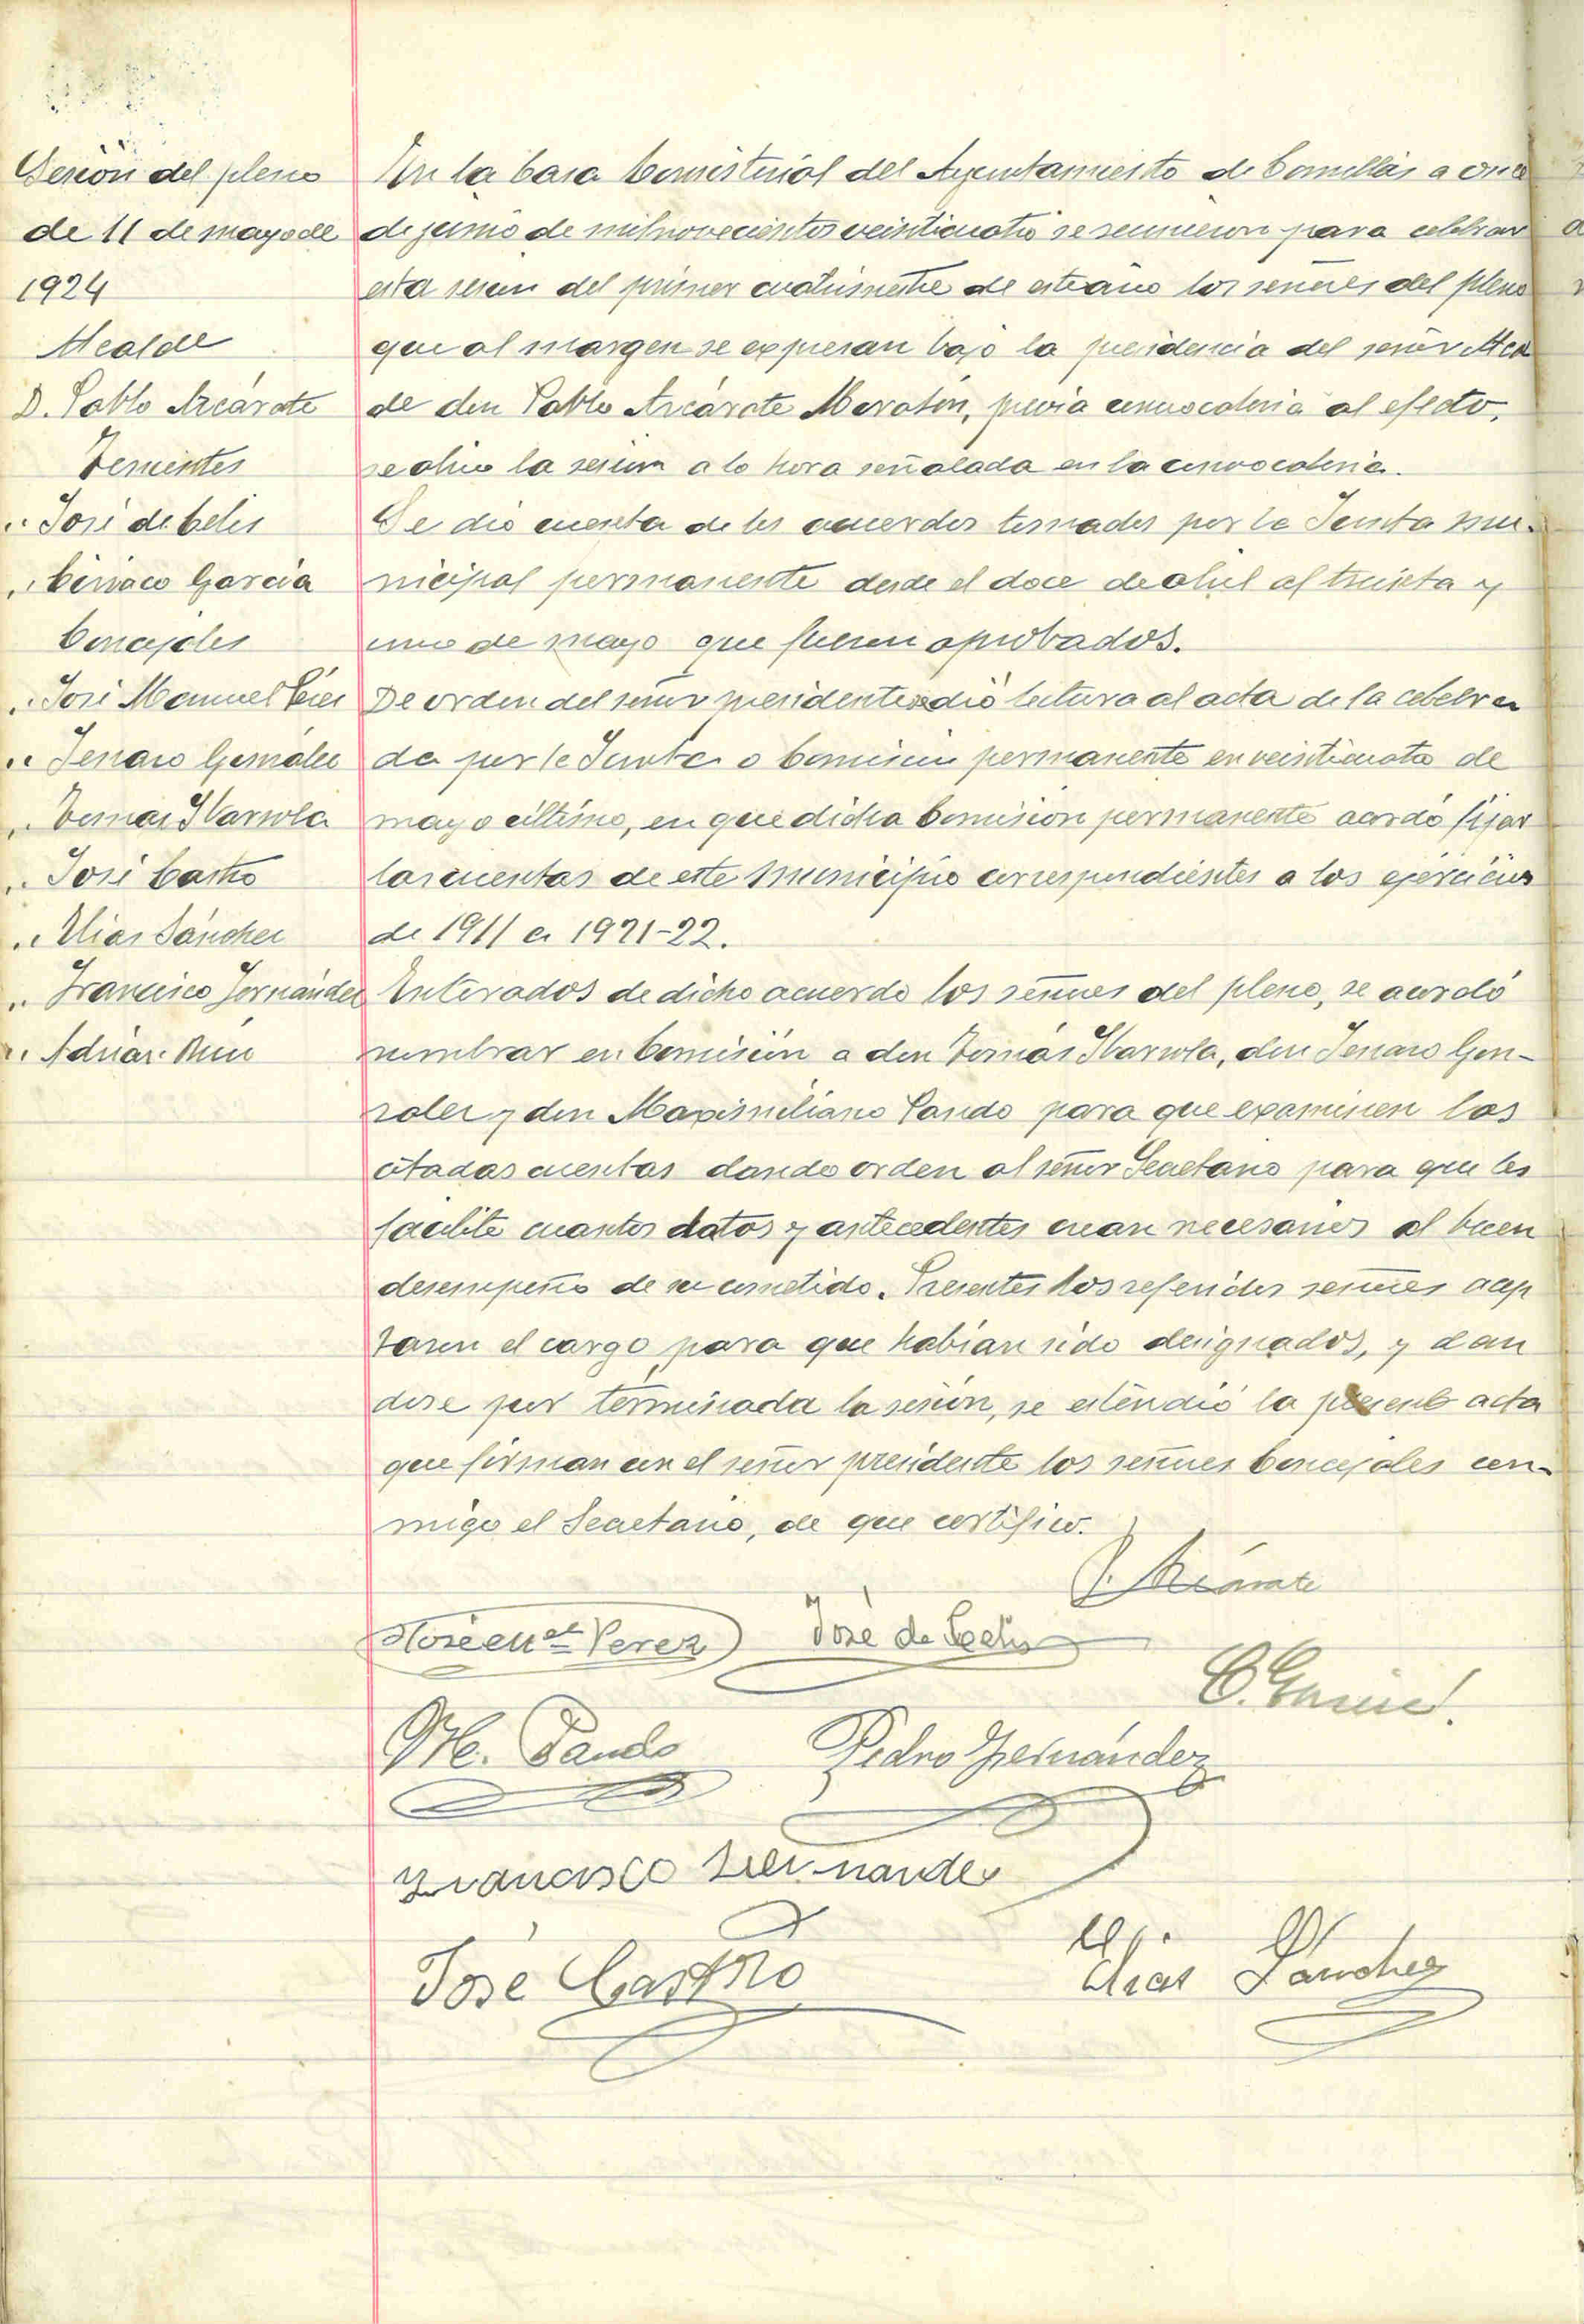 Sesión del pleno
de 11 de mayo de
1924
Alcalde
D. Pablo Azcárate
Tenientes
" José de Celis
" Ciriaco García
Concejales
" José Manuel Pérez
" Jenaro González
" Tomás Ibarrola
" José Castro
" Elias Sánchez
" Francisco Fernández
" Adrián
En la Casa Consistorial del Ayuntamiento de Comillas a once
de junio de mil novecientos veinticuatro se reunieron para celebrar
esta sesión del primer cuatrimestre de este año los señores del pleno
que al margen se expresan bajo la presidencia del señor Alcal
de don Pablo Azcárate Maratón, previa convocatoria al efecto,
se abrio la sesión a la hora señalada en la convocatoria.
Se dio cuenta de los acuerdos tomados por la Junta mu-
nicipal permanente desde el doce de abril al treinta y
uno de mayo que fueron aprobados.
De orden del señor presidente se dió lectura al acta de la celebra
da por la Junta o Comisión permanente en veinticuatro de
mayo último, en que dicha Comisión permanente acordó fijar
las cuentas de este Municipio correspondientes a los ejercicios
de 1911 a 1921-22.
Enterados de dicho acuerdo los señores del pleno, se acordó
nombrar en Comisión a don Tomás Ibarrola, don Jenaro Gon-
zalez y don Maximiliano Pando para que examinen las
citadas cuentas dando orden al señor Secretario para que les
facilite cuantos datos y antecedentes crean necesarios al buen
desempeño de su cometido. Presentes los referidos señores acep
taron el cargo para que habían sido designados, y dan
dose por terminada la sesión, se extendió la presente acta
que firman con el señor presidente los señores Concejales con-
migo el Secretario, de que certifico.
P. Azcárate
José Mel Perez José de Celis
C. García
M. Pando Pedro Fernández
Francisco Fernandez
José Castro Elias Sanchez